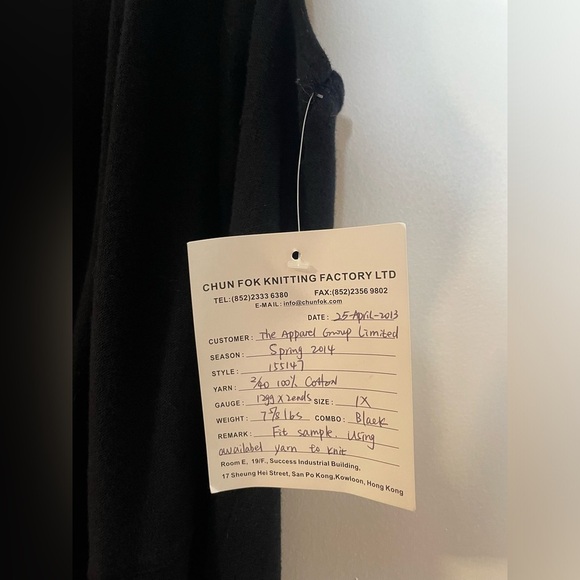 CHUN FOK KNITTING FACTORY LTD
TEL:(852)2333 6380 FAX:(852)2356 9802
E-MAIL: info@chunfok.com
DATE: 25-April-2013
CUSTOMER: The Apparel Group Limited
SEASON: Spring 2014
STYLE: 155147
YARN: 2/40 100% Cotton
GAUGE: 12gg x 2ends SIZE: 1X
WEIGHT: 7 5/8 lbs COMBO: Black
REMARK: Fit sample. Using
availabel yarn to knit
Room E, 19/F., Success Industrial Building,
17 Sheung Hei Street, San Po Kong, Kowloon, Hong Kong